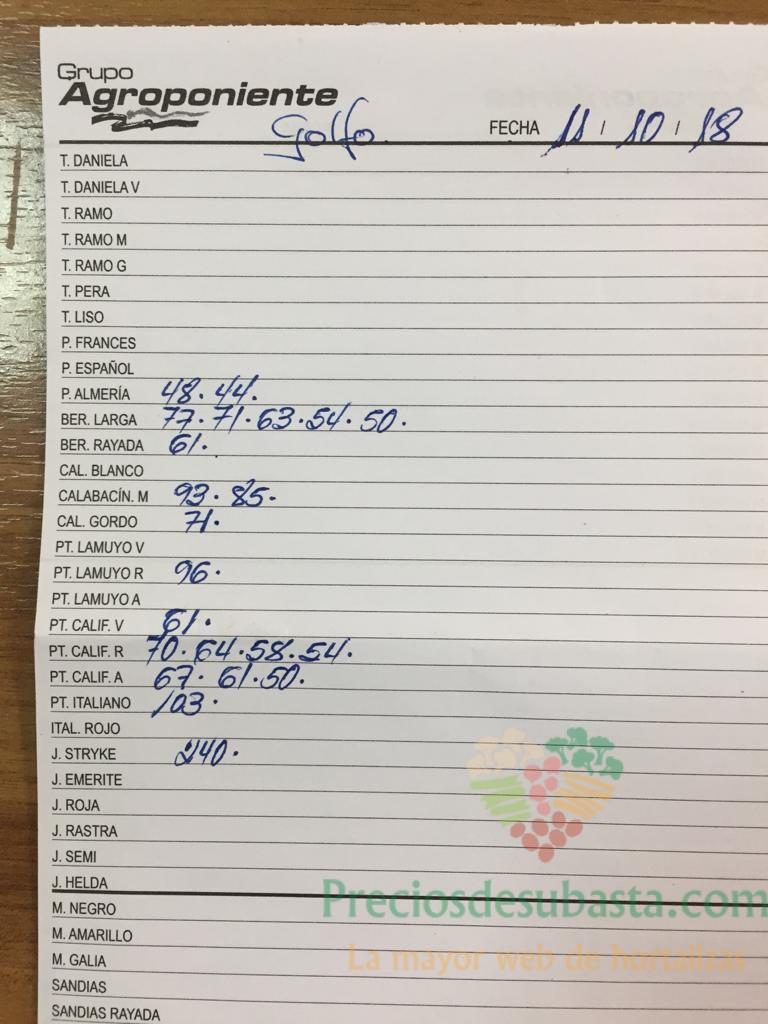 Grupo
Agroponiente
Golfo FECHA 11 / 10 / 18
T. DANIELA
T. DANIELA V
T. RAMO
T. RAMO M
T. RAMO G
T. PERA
T. LISO
P. FRANCES
P. ESPAÑOL
P. ALMERÍA 48. 44.
BER. LARGA 77. 71. 63. 54. 50.
BER. RAYADA 61.
CAL. BLANCO
CALABACÍN. M 93. 85.
CAL. GORDO 71.
PT. LAMUYO V
PT. LAMUYO R 96.
PT. LAMUYO A
PT. CALIF. V 61.
PT. CALIF. R 70. 64. 58. 54.
PT. CALIF. A 67. 61. 50.
PT. ITALIANO 103.
ITAL. ROJO
J. STRYKE 240.
J. EMERITE
J. ROJA
J. RASTRA
J. SEMI
J. HELDA
M. NEGRO
M. AMARILLO
M. GALIA
SANDIAS
SANDIAS RAYADA
Preciosdesubasta.com
La mayor web de hortalizas